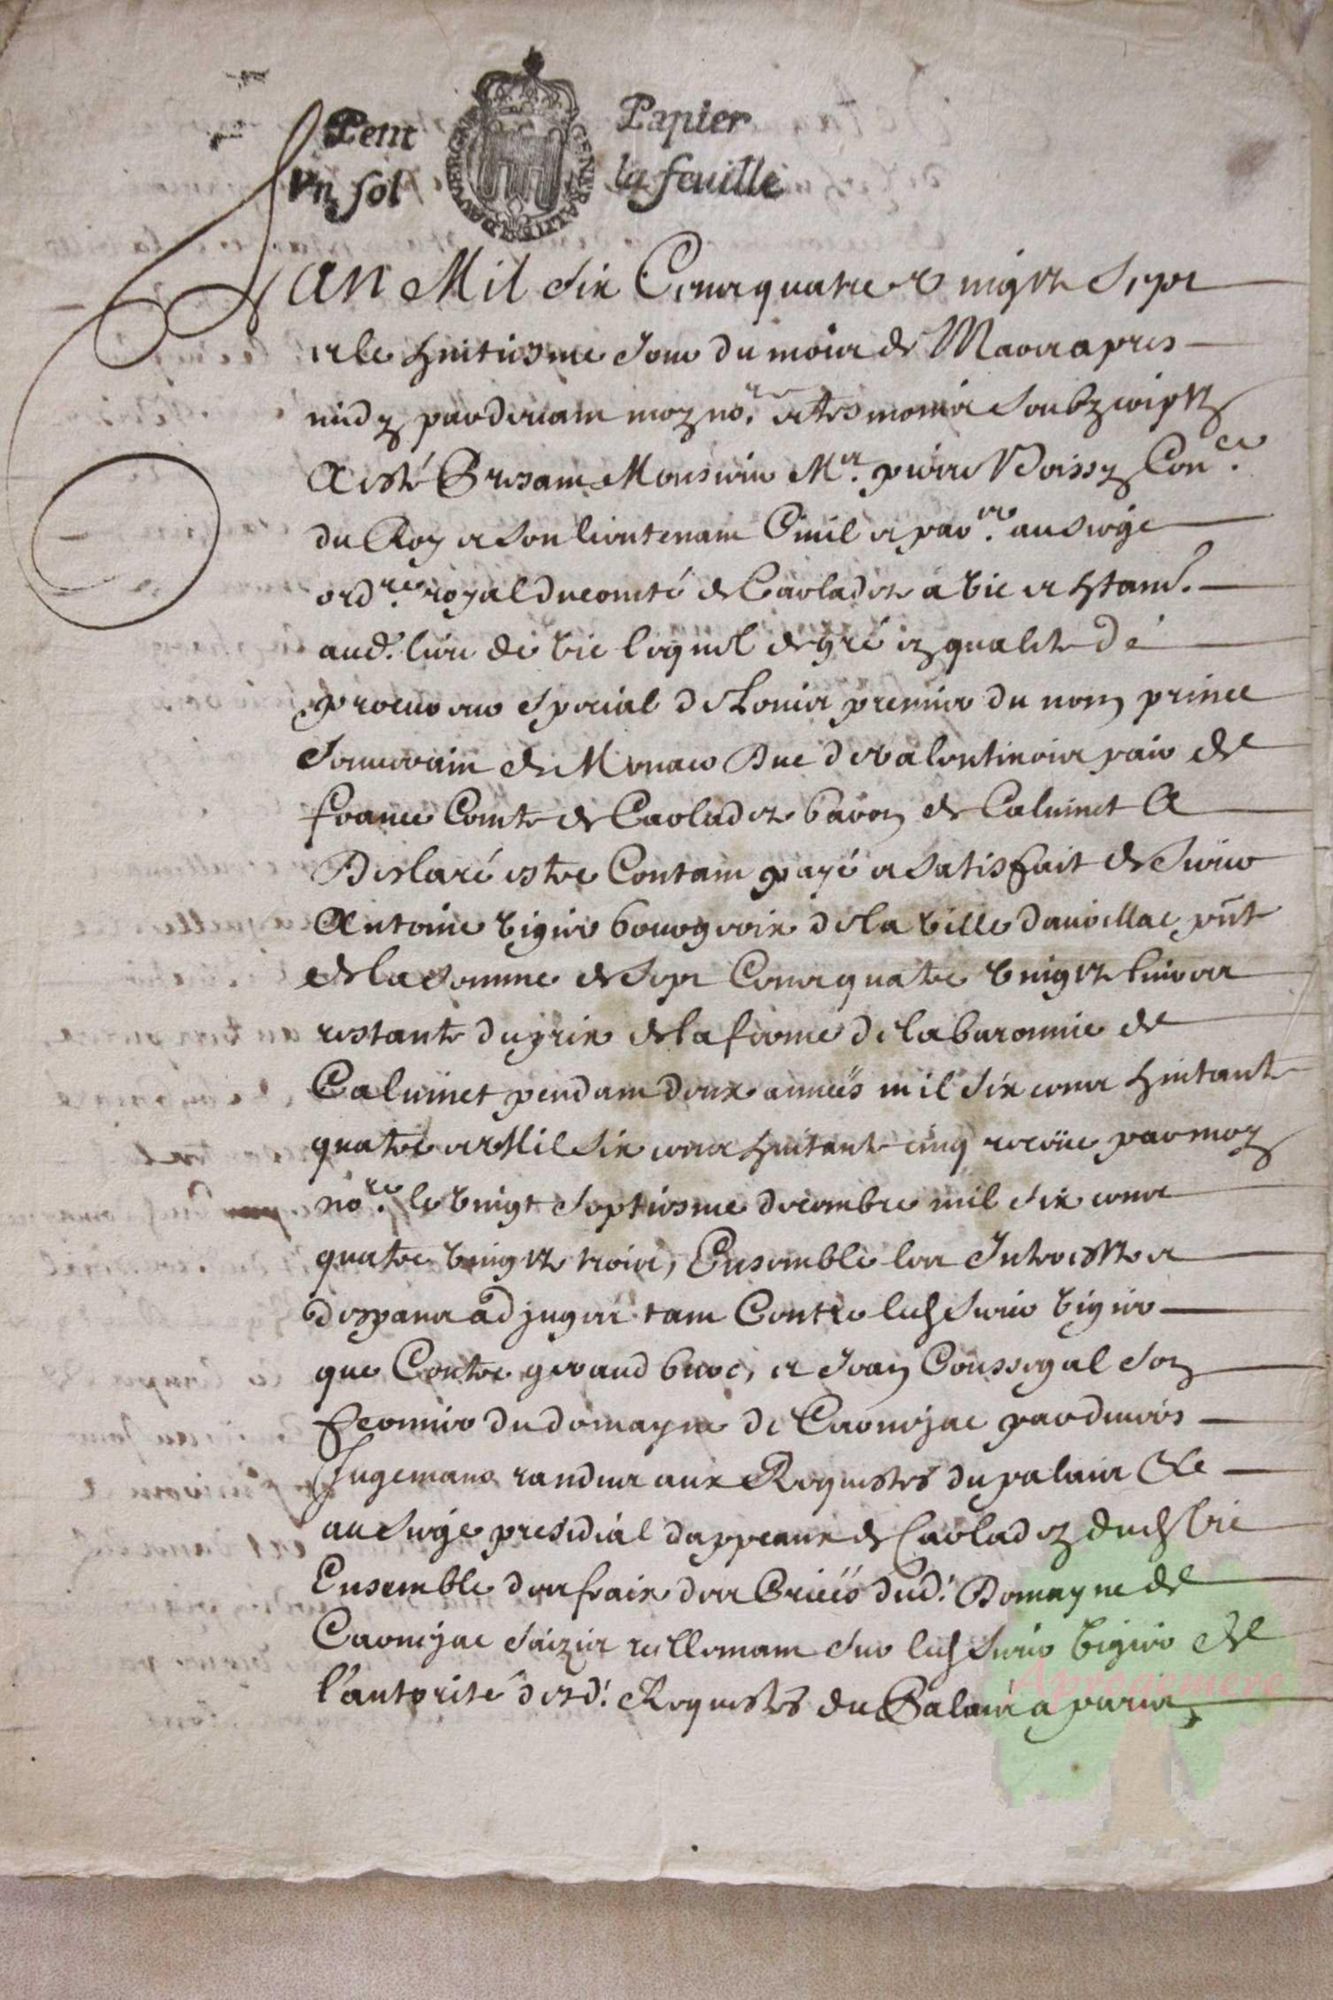 Petit Papier
Vn sol la feuille
GENERALITE D'AUVERGNE
L'an Mil Six Cens quatre vingtz Sept
et le huitiesme Jour du mois de Mars apres
midy pardevant moy no.re et tesmoins Soubzcriptz
A esté Present Monsieur M.re pierre Boissy Con.er
du Roy et Son lieutenant Civil et par.er au Siege
ord.re royal du comté de Carladez a Vic et habitant.
aud. lieu de Vic lequel de gré en qualité de
procureur Special de Louis premier du nom prince
Souverain de Monaco Duc de valentinois pair de
france Comte de Carladez baron de Calvinet A
Declaré estre Contant payé et Satisfait de Sieur
Antoine Vigier bourgeois de la Ville daurillac pnt
de la Somme de Sept Cens quatre Vingtz livres
restante du prix de la ferme de la baronnie de
Calvinet pendant deux années mil Six cens huitante
quatre et Mil Six cens huitante cinq receüe par moy
no.re le Vingt Septiesme decembre mil Six cens
quatre Vingtz trois, Ensemble les Interestz et
despans adjuges tant Contre led. Sieur Vigier
que Contre geraud broc, et Jean Coussegal Son
fermier du domayne de Carnejac par divers
Jugemans randus aux Requestes du palais &c
au Siege presidial dappeaux de Carladez dud. Vic
Ensemble des fraix des Criées dud. Domayne de
Carnejac Saizis reellemant Sur led. Sieur Vigier de
l'autorité desd. Requestes du Palais a paris
Aprogemere